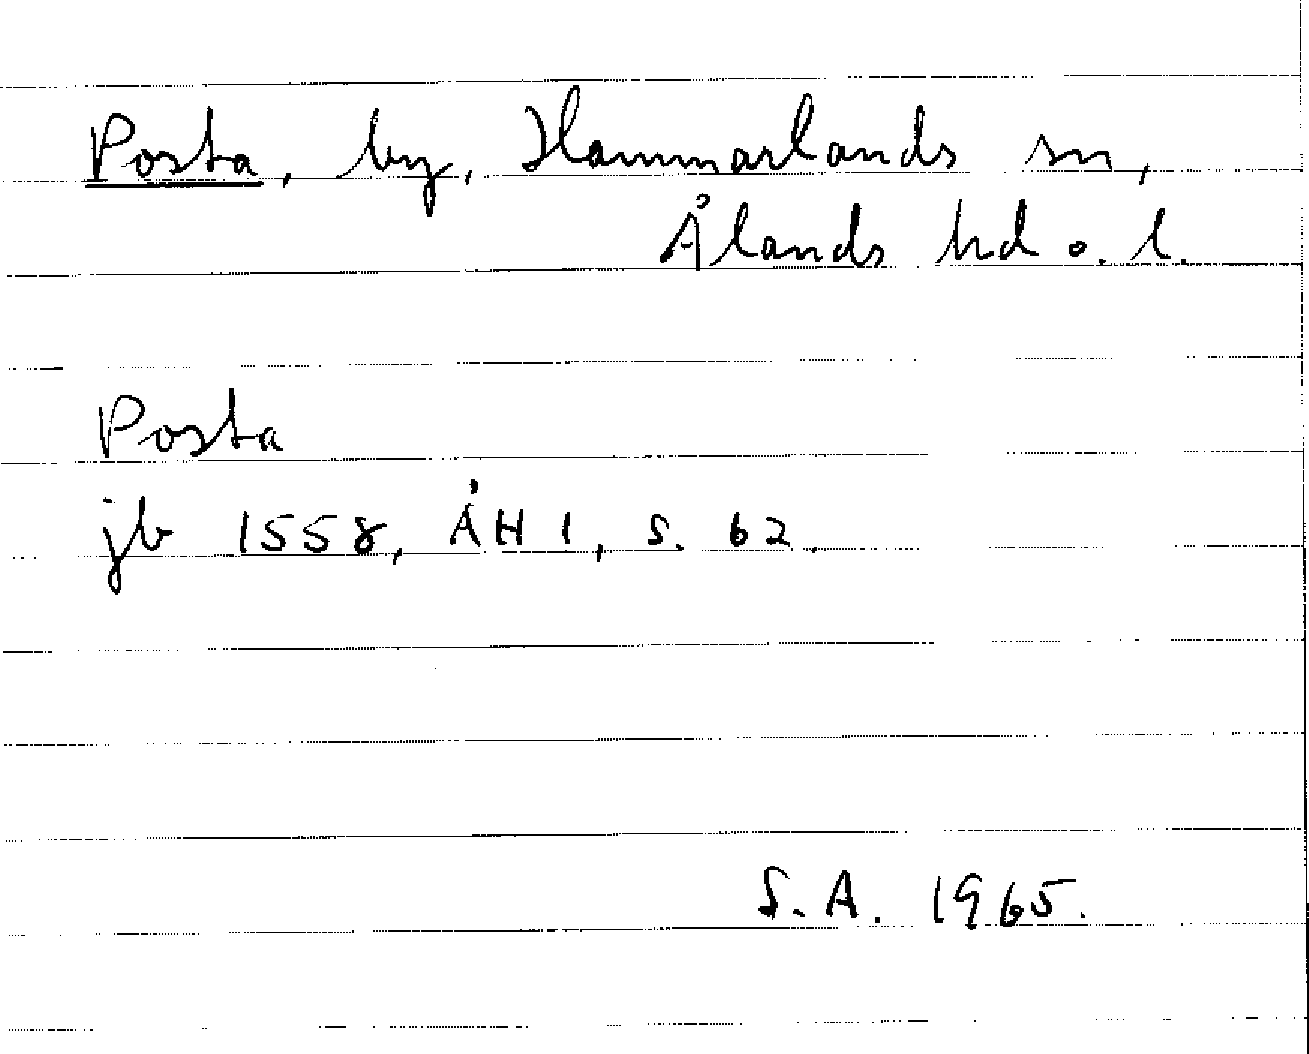 Posta, by, Hammarlands sn,
Ålands hd o. l.
Posta
jb 1558, ÅH 1, s. 62.
S.A. 1965.